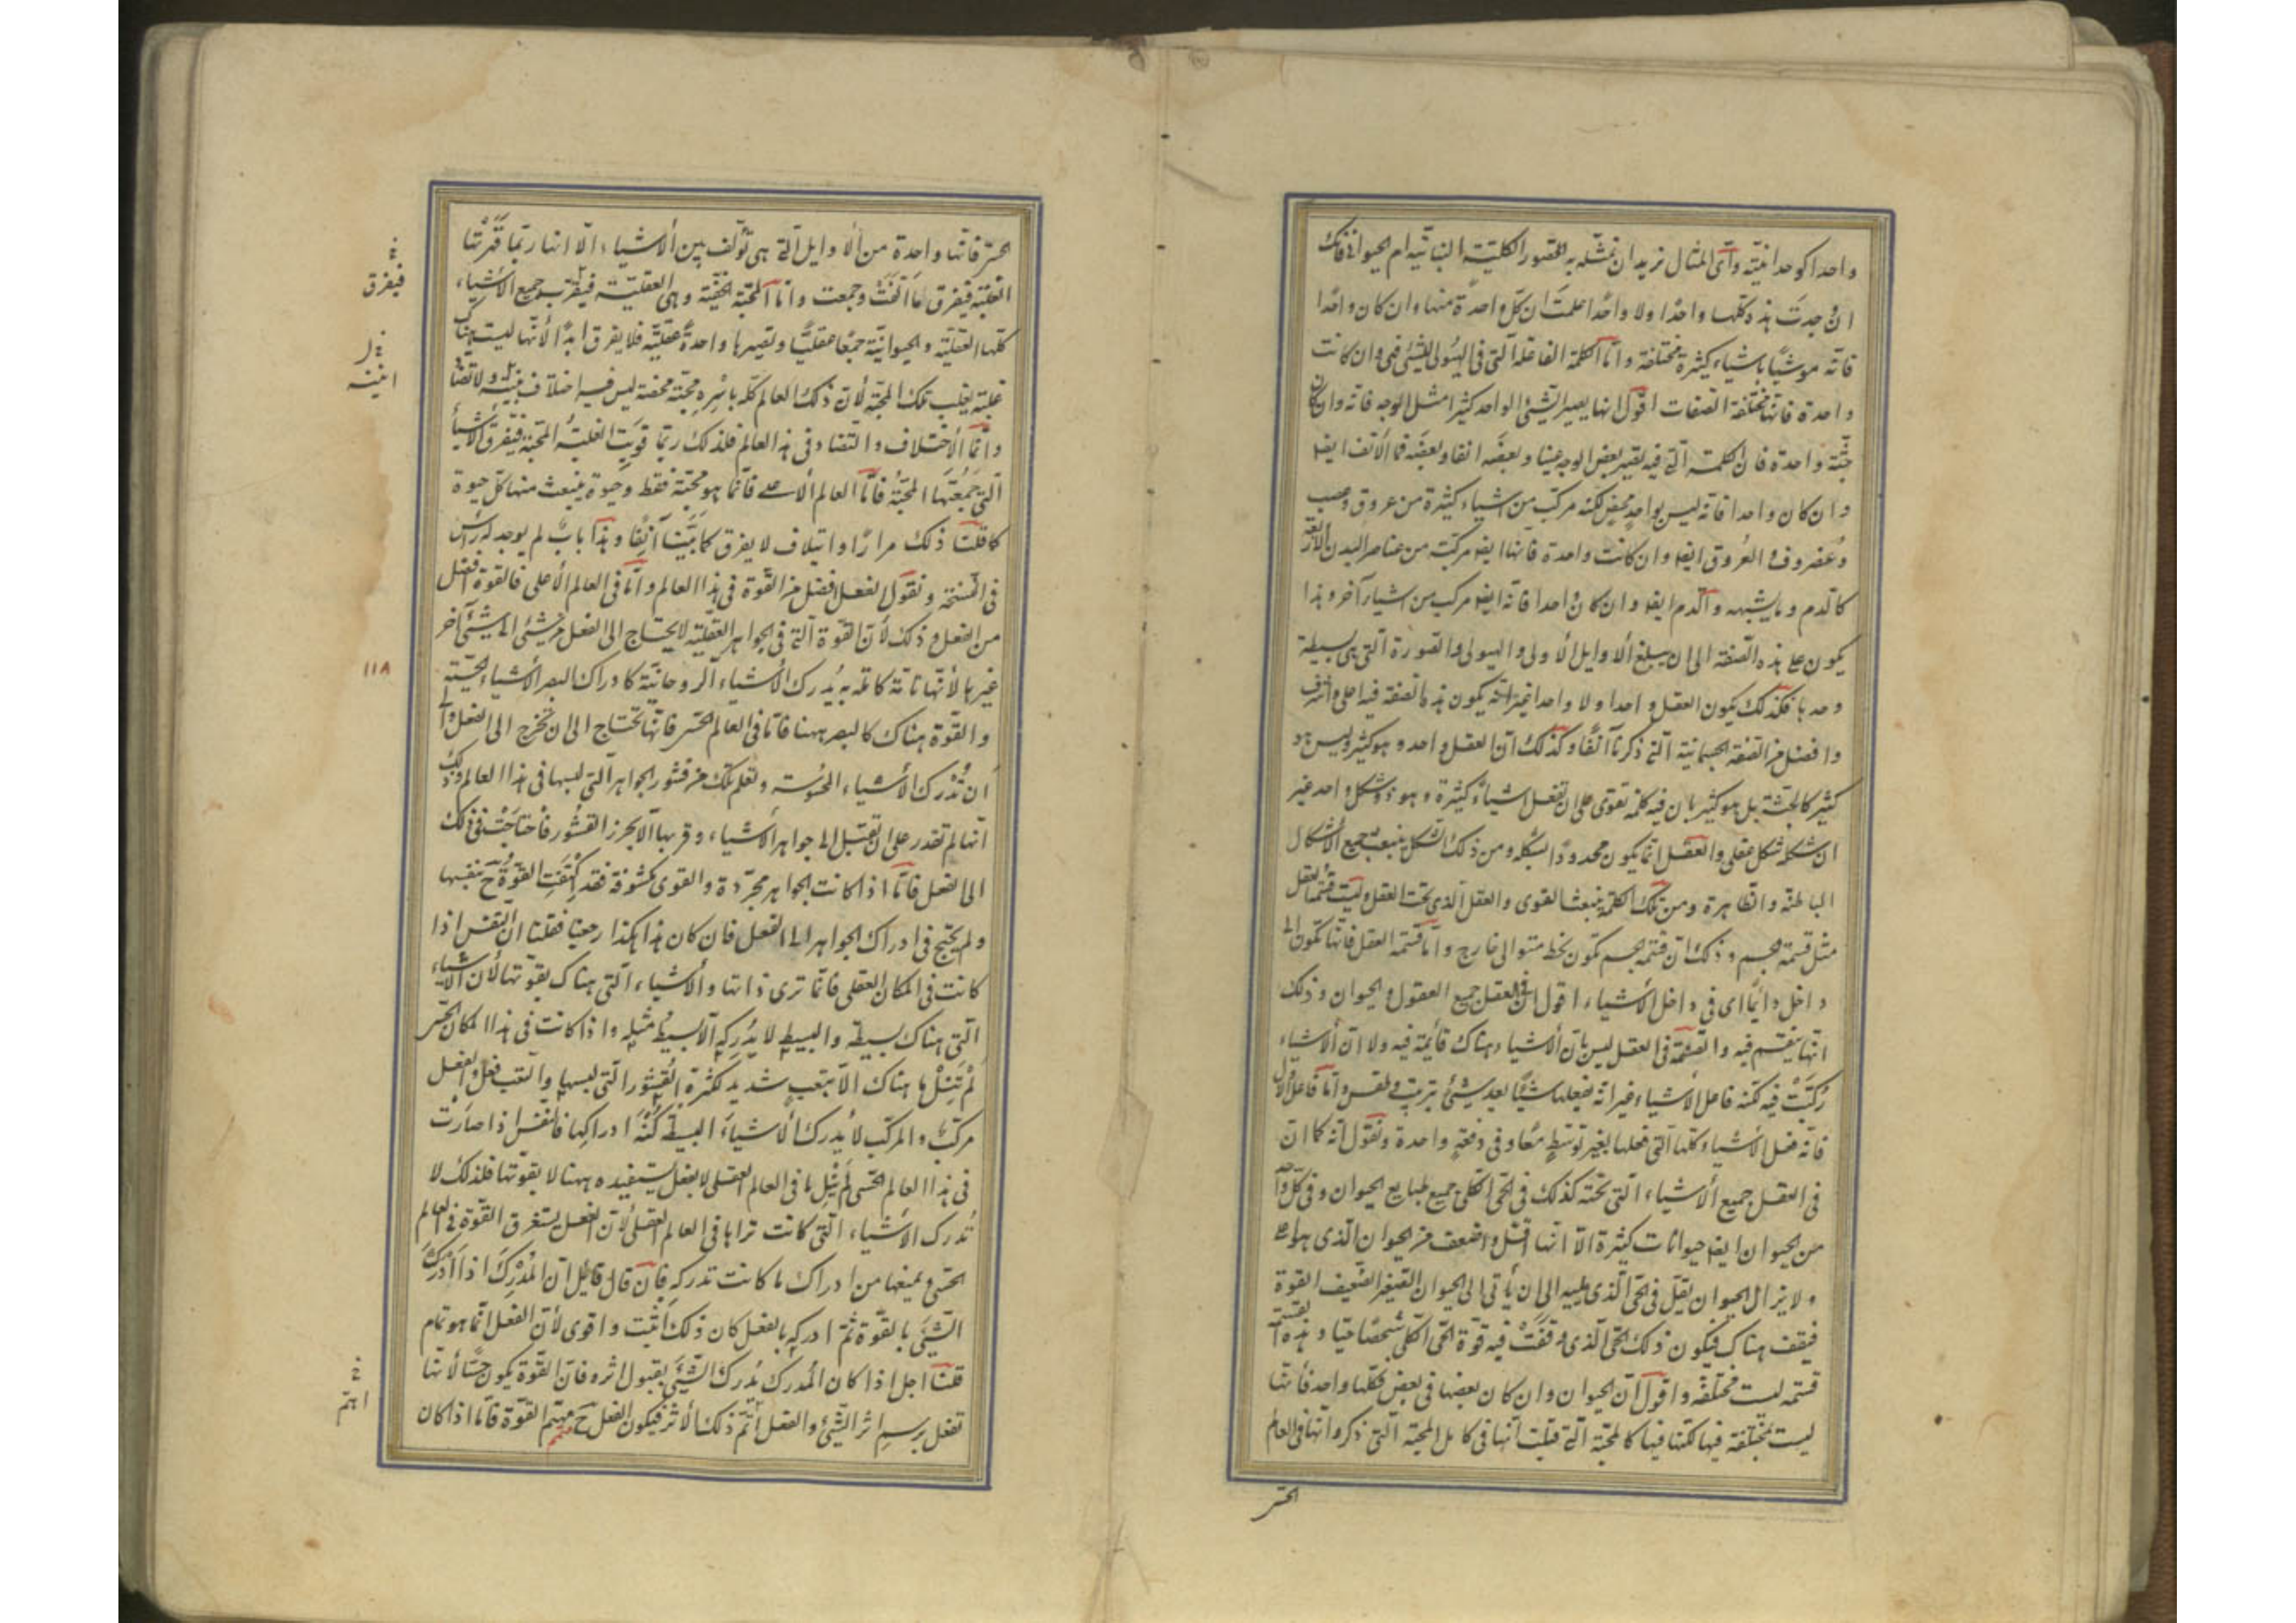 واحدا كوحدانيّته وأىّ المثال نريد ان نمثّله به الصّور الكليّة النباتيّه ام الحيوانى فانّك
ان وجدت هذه كلّها واحدا ولا واحدًا علمتَ ان كلّ واحدة منها وان كان واحدًا
فانّه موشيًّا باشياء كثيرة مختلفة وامّا الكلمة الفاعله التى فى الهيولى للشئ فهى وان كانت
واحدة فانّها مختلفة الصّفات اقول انها يصير الشئ الواحد كثيرا مثل الوجه فانه وان كان
جثّة واحدة فان الكلمة التى فيه يصير بعض الوجه عينا وبعضَه انفا وبعضَه فما الأنف ايضا
وان كان واحدا فانه ليس بواحدٍ محضٍ لكنه مركّب من اشياء كثيرة من عروق وعصب
وغضروف والعُروق ايضا وان كانت واحدة فانها ايضا مركّبة من عناصر البدن
كالّدم وما يشبهه والّدم ايضا وان كان واحدا فانه ايضا مركب من اشياء آخر وهذا
يكون على هذه الصّفة الى ان يبلغ الاوايل الأولى والهيولى والصّورة التى هى بسيطة
وحدها فكذلك يكون العقل واحدا ولا واحدا غير انّه يكون هذه الصّفة فيه اعلى واشرف
وافضل من الصّفة الجسمانية التى ذكرناآنفًا وكذلك انّ العقل واحد وهو كثير وليس هو
كثير كالجثّة بل هو كثير بان فيه كلمة تقوى على ان تفعل اشياءَ كثيرة وهو ذو شكل واحد غير
ان شكله شكل عقلى والعقل انّما يكون محدودًا بشكله ومن ذلك الشّكل ينبعث جميع الأشكال
الباطنة والظّاهرة ومن تلك الكلمة ينبعث القوى والعقل الّذى تحت العقل وليست قسمة العقل
مثل قسمة الجسم وذلك انّ قسمة الجسم تكون بخط مستو الى خارج وامّا قسمة العقل فانّها تكون الى
داخل دائمًا اى فى داخل الأشياء اقول ان فى العقل جميع العقول والحيوان وذلك
انها تنقسم فيه والقسْمَة فى العقل ليس بانّ الأشياء هناك قائمة فيه ولا انّ الأشياء
رُكّبَتْ فيه لكنه فاعل الأشياء غير انّه يفعلها شيئًا بعد شئ بترتيب وطقس وامّا فاعل الاوّل
فانّه فعل الأشياء كلّها التى فعلها بغير توسّطٍ معًا وفى دفعةٍ واحدة ونقول انّه كما انّ
فى العقل جميع الأشياء التى تحته كذلك فى الحىّ الكلّى جميع طبايع الحيوان وفى كل واحد
من الحيوان ايضا حيوانات كثيرة الّا انها اقلّ واضعف من الحيوان الّذى هو اعلى
ولا يزال الحيوان يقلّ فى الحىّ الّذى يليه الى ان يأتى الى الحيوان الصّغير الضّعيف القوة
فيقف هناك فيكون ذلك الحىّ الّذى وقفَتْ فيه قوّة الحىّ الكلّى شخصًا حيّا وهذه القسمة
قسمة ليست مختلفة واقول انّ الحيوان وان كان بعضها فى بعض فكلّها واحد فانّها
ليست بمختلفة فيها لكنّها فيها كالمحبّة التى قيلت انّها فى كامل المحبّة التى ذكروا انّها فى العالم
الحسّى
الحسّى فانّها واحدة من الأوايل الّتى هى تؤلّف بين الأشياء الّا انها ربّما قَهَرتْها
الغلبة فيفرق ما اَلّفتْ وجمعت وامّا المحبّة الحقّة وهى العقليّة فيقرّب جميع الأشياء
كلّها العقليّة والحيوانيّة جمعًا عقليًّا وتصيرها واحدةً عقليّة فلا يفرق ابدًا لأنّها ليست هناك
غلبة يغلب تلك المحبّه لأنّ ذلك العالم كلّه باسْره محبّة محضة ليس فيه اختلاف بنّيّة ولا تضاد
وانّما الأختلاف والتّضاد فى هذا العالم فلذلك ربّما قويَت الغلبةُ المحبّة فتفرق الأشياء
الّتى جَمَعَتْها المحبّةُ فأمّا العالم الأعلى فانّما هو محبّة فقط وحيوة ينبعث منها كلّ حيوة
كما قلنا ذلك مرارًا وايتلاف لا يفرق كما بيّنا آنفًا وهذا بابٌ لم يوجد له رأس
فى النّسخة ونقول الفعل افضل من القوّة فى هذا العالم وامّا فى العالم الأعلى فالقوة افضل
من الفعل وذلك لأنّ القوة الّتى فى الجواهر العقليّة لا يحتاج الى الفعل من شئ الى شئ آخر
غيرها لأنّها تامّة كاملة به يُدرك الأشياء الروحانيّة كادراك البصر الأشياء الحسّيّة
والقوّة هناك كالبصر ههنا فامّا فى العالم الحسّى فانّها تحتاج الى ان تخرج الى الفعل والى
أن تُدْرك الأشياء المحسُوسة وتعلم تلك من قشور الجواهر الّتى لبسها فى هذا العالم وذلك
انّها لم تقدر على ان تصل الى جواهر الأشياء وقربها الّا بخرز القشور فأحتاجَتْ فى ذلك
الى الفعل فامّا اذا كانت الجواهر مجرّدة والقوى مكشوفة فقد اكْتفَت القوّة ح بنفسها
ولم يحتج فى ادراك الجواهر الى الفعل فان كان هذا هكذا رجعنا فقلنا انّ النّفس اذا
كانت فى المكان العقلى فانّما ترى ذاتها والأشياء الّتى هناك بقوّتها لأن الأشياء
الّتى هناك بسيطة والبسيط لا يُدرِكه الّا بسيطٌ مثله واذا كانت فى هذا المكان الحسّى
لم تَنَلْ ما هناك الّا بتعب شديد لكثرة القشور الّتى لبسها والتعب فعل والفعل
مركّب والمركّب لا يُدرك الأشياءَ البسيطة كُنْهَ ادراكها فالنّفس اذا صارَتْ
فى هذا العالم الحسّى لم تَنَل ما فى العالم العقلى لا بفعل يستفيده ههنا لا بقوّتها فلذلك لا
تُدرك الأشياء الّتى كانت تراها فى العالم العقلى لأنّ الفعل يستغرق القوّة فى العالم
الحسّى ويمنعها من ادراك ما كانت تدركه فإن قال قائل انّ المُدْرِكَ اذا أدرَك
الشئَ بالقوّة ثم ادركه بالفعل كان ذلك اثبت واقوى لأنّ الفعل انّما هو تمام
قلنا اجل اذا كان المُدرك يُدرك الشّئَ بقبول اثره فانّ القوّة يكون حسًّا لأنها
تفعل برسم اثر الشّئ والفعل أتَمّ ذلك الأثر فيكون الفعل ح متمّم القوّة فامّا اذا كان
فيفرق
اثنيّة
١١٨
اتمّ
متمم